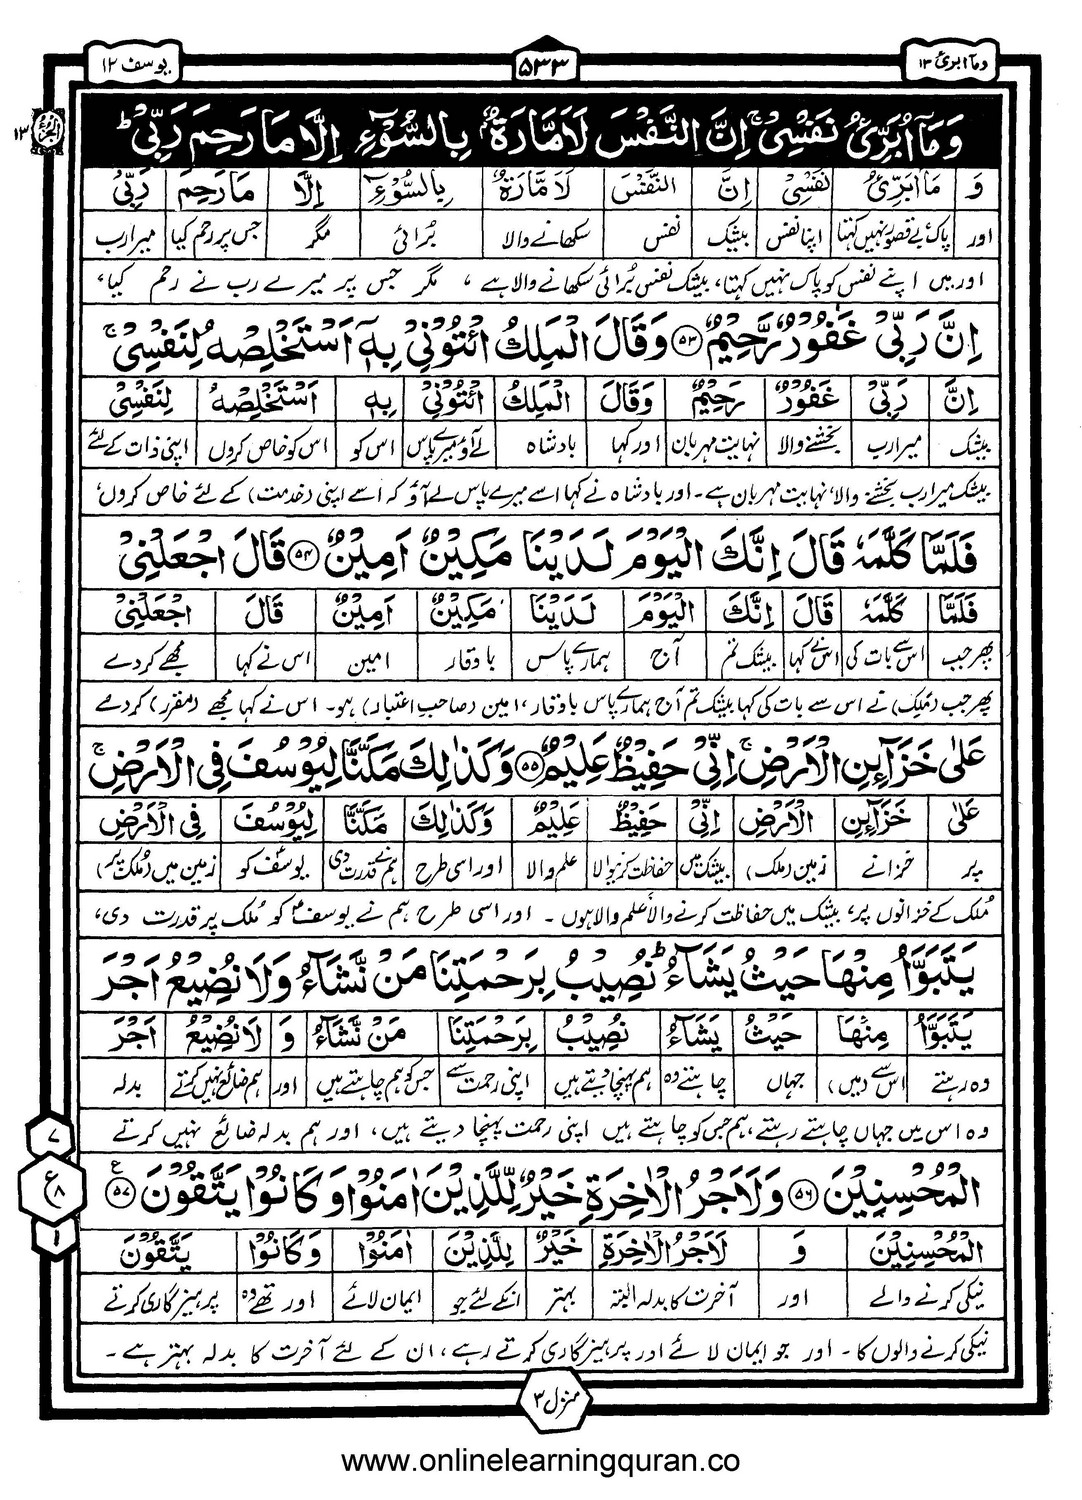 یوسف ۱۲
۵۳۳
ومآ ابرئ ۱۳
وَمَآ اُبَرِّئُ نَفْسِیْ ۚ اِنَّ النَّفْسَ لَاَمَّارَةٌۢ بِالسُّوْٓءِ اِلَّا مَا رَحِمَ رَبِّیْ ؕ
۱۳
وَ مَآ اُبَرِّئُ نَفْسِیْ اِنَّ النَّفْسَ لَاَمَّارَةٌۢ بِالسُّوْٓءِ اِلَّا مَا رَحِمَ رَبِّیْ
اور پاک بے قصور نہیں کہتا اپنا نفس بیشک نفس سکھانے والا بُرائی مگر جس پر رحم کیا میرا رب
اور میں اپنے نفس کو پاک نہیں کہتا، بیشک نفس بُرائی سکھانے والا ہے ، مگر جس پر میرے رب نے رحم کیا،
اِنَّ رَبِّیْ غَفُوْرٌ رَّحِیْمٌ ﴿۵۳﴾ وَقَالَ الْمَلِكُ ائْتُوْنِیْ بِهٖۤ اَسْتَخْلِصْهُ لِنَفْسِیْ ۚ
اِنَّ رَبِّیْ غَفُوْرٌ رَحِیْمٌ وَقَالَ الْمَلِكُ ائْتُوْنِیْ بِهٖۤ اَسْتَخْلِصْهُ لِنَفْسِیْ
بیشک میرا رب بخشنے والا نہایت مہربان اور کہا بادشاہ لے آؤ میرے پاس اس کو اس کو خاص کروں اپنی ذات کے لئے
بیشک میرا رب بخشنے والا، نہایت مہربان ہے۔ اور بادشاہ نے کہا اسے میرے پاس لے آؤ کہ اسے اپنی (خدمت) کے لئے خاص کروں،
فَلَمَّا كَلَّمَهٗ قَالَ اِنَّكَ الْیَوْمَ لَدَیْنَا مَكِیْنٌ اَمِیْنٌ ﴿۵۴﴾ قَالَ اجْعَلْنِیْ
فَلَمَّا كَلَّمَهٗ قَالَ اِنَّكَ الْیَوْمَ لَدَیْنَا مَكِیْنٌ اَمِیْنٌ قَالَ اجْعَلْنِیْ
پھر جب اس سے بات کی اس نے کہا بیشک تم آج ہمارے پاس باوقار امین اس نے کہا مجھے کر دے
پھر جب (ملک) نے اس سے بات کی کہا بیشک تم آج ہمارے پاس باوقار، امین (صاحبِ اعتبار) ہو۔ اس نے کہا مجھے (مقرر) کر دے
عَلٰی خَزَآئِنِ الْاَرْضِ ۚ اِنِّیْ حَفِیْظٌ عَلِیْمٌ ﴿۵۵﴾ وَكَذٰلِكَ مَكَّنَّا لِیُوْسُفَ فِی الْاَرْضِ ۚ
عَلٰی خَزَآئِنِ الْاَرْضِ اِنِّیْ حَفِیْظٌ عَلِیْمٌ وَكَذٰلِكَ مَكَّنَّا لِیُوْسُفَ فِی الْاَرْضِ
پر خزانے زمین (ملک) بیشک میں حفاظت کرنیوالا علم والا اور اسی طرح ہم نے قدرت دی یوسفؑ کو زمین میں (مُلک پر)
مُلک کے خزانوں پر، بیشک میں حفاظت کرنے والا، علم والا ہوں ۔ اور اسی طرح ہم نے یوسفؑ کو مُلک پر قدرت دی،
یَتَبَوَّاُ مِنْهَا حَیْثُ یَشَآءُ ؕ نُصِیْبُ بِرَحْمَتِنَا مَنْ نَّشَآءُ وَلَا نُضِیْعُ اَجْرَ
یَتَبَوَّاُ مِنْهَا حَیْثُ یَشَآءُ نُصِیْبُ بِرَحْمَتِنَا مَنْ نَّشَآءُ وَ لَا نُضِیْعُ اَجْرَ
وہ رہتے اس سے (میں) جہاں چاہتے وہ ہم پہنچا دیتے ہیں اپنی رحمت سے جس کو ہم چاہتے ہیں اور ہم ضائع نہیں کرتے بدلہ
وہ اس میں جہاں چاہتے رہتے، ہم جس کو چاہتے ہیں اپنی رحمت پہنچا دیتے ہیں، اور ہم بدلہ ضائع نہیں کرتے
۷
ع ۸
۱
الْمُحْسِنِیْنَ ﴿۵۶﴾ وَلَاَجْرُ الْاٰخِرَةِ خَیْرٌ لِّلَّذِیْنَ اٰمَنُوْا وَكَانُوْا یَتَّقُوْنَ ﴿۵۷﴾ ع
الْمُحْسِنِیْنَ وَ لَاَجْرُ الْاٰخِرَةِ خَیْرٌ لِلَّذِیْنَ اٰمَنُوْا وَكَانُوْا یَتَّقُوْنَ
نیکی کرنے والے اور آخرت کا بدلہ البتہ بہتر انکے لئے جو ایمان لائے اور تھے وہ پرہیزگاری کرتے
نیکی کرنے والوں کا۔ اور جو ایمان لائے اور پرہیزگاری کرتے رہے، ان کے لئے آخرت کا بدلہ بہتر ہے ۔
منزل ۳
www.onlinelearningquran.co